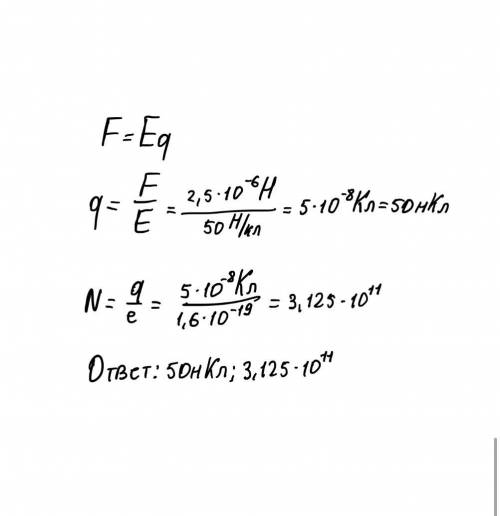 F=Eq
q = F/E = 2,5·10⁻⁶Н / 50 Н/кл = 5·10⁻⁸Кл=50нКл
N = q/e = 5·10⁻⁸Кл / 1,6·10⁻¹⁹ = 3,125·10¹¹
Ответ: 50нКл; 3,125·10¹¹